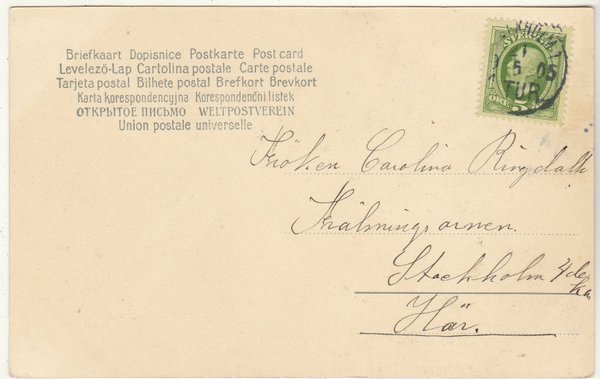 Briefkaart Dopisnice Postkarte Post card
Levelező-Lap Cartolina postale Carte postale
Tarjeta postal Bilhete postal Brefkort Brevkort
Karta korespondencyjna Korespondenční listek
ОТКРЫТОЕ ПИСЬМО WELTPOSTVEREIN
Union postale universelle
5
ÖRE
1
5 05
TUR
Fröken Carolina Ringdahl
Stockholm
Här.